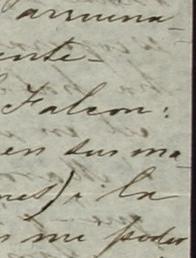 arruina-
ente-
Falcon:
en sus ma-
nes) i la
s me poder